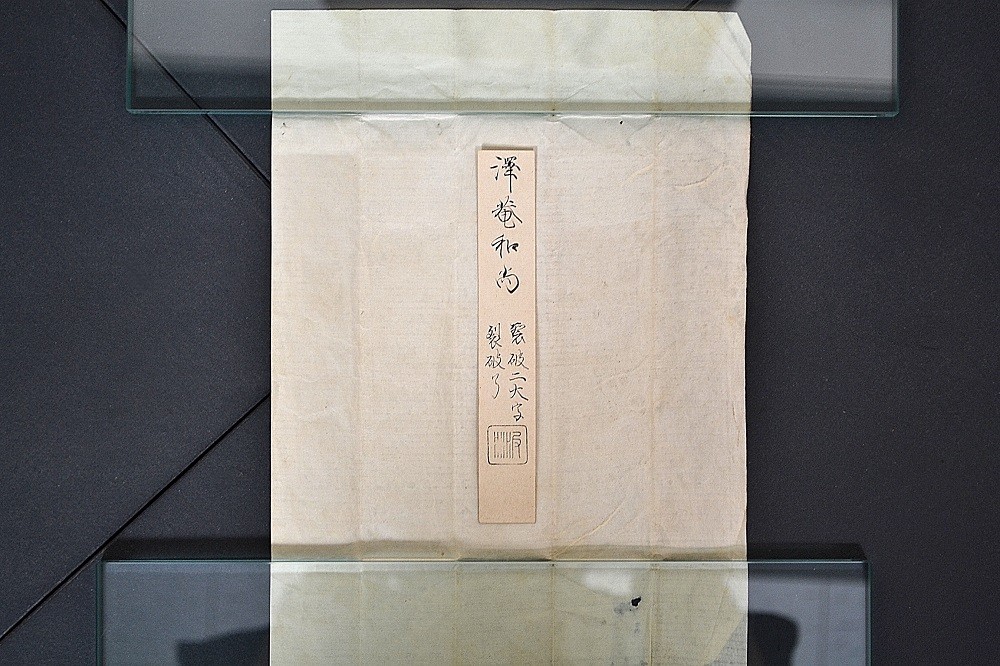 澤菴和尚
裂破二大字
裂破了